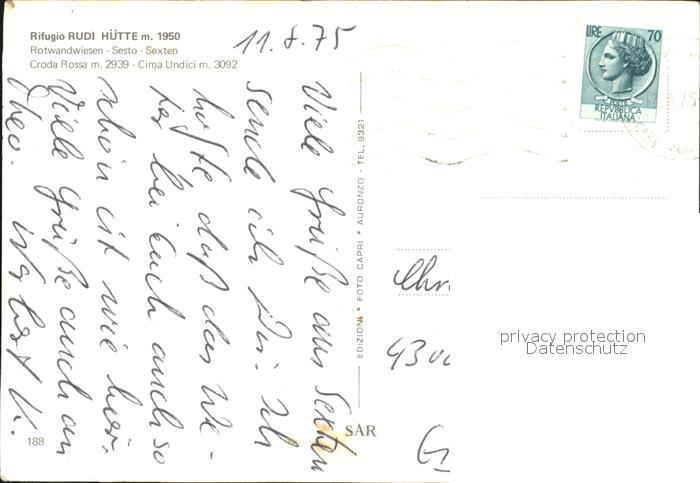 Rifugio RUDI HÜTTE m. 1950
Rotwandwiesen - Sesto - Sexten
Croda Rossa m. 2939 - Cima Undici m. 3092
11.8.75
Viele Grüße aus Sexten
sende ich Dir. Ich
hoffe daß das We-
ter bei Euch auch so
schön ist wie hier.
Viele Grüße auch an
Theo.
188
EDIZIONI * FOTO CAPRI * AURONZO - TEL. 9321
SAR
LIRE 70
POSTE
REPVBBLICA
ITALIANA
Chr
4300
privacy protection
Datenschutz